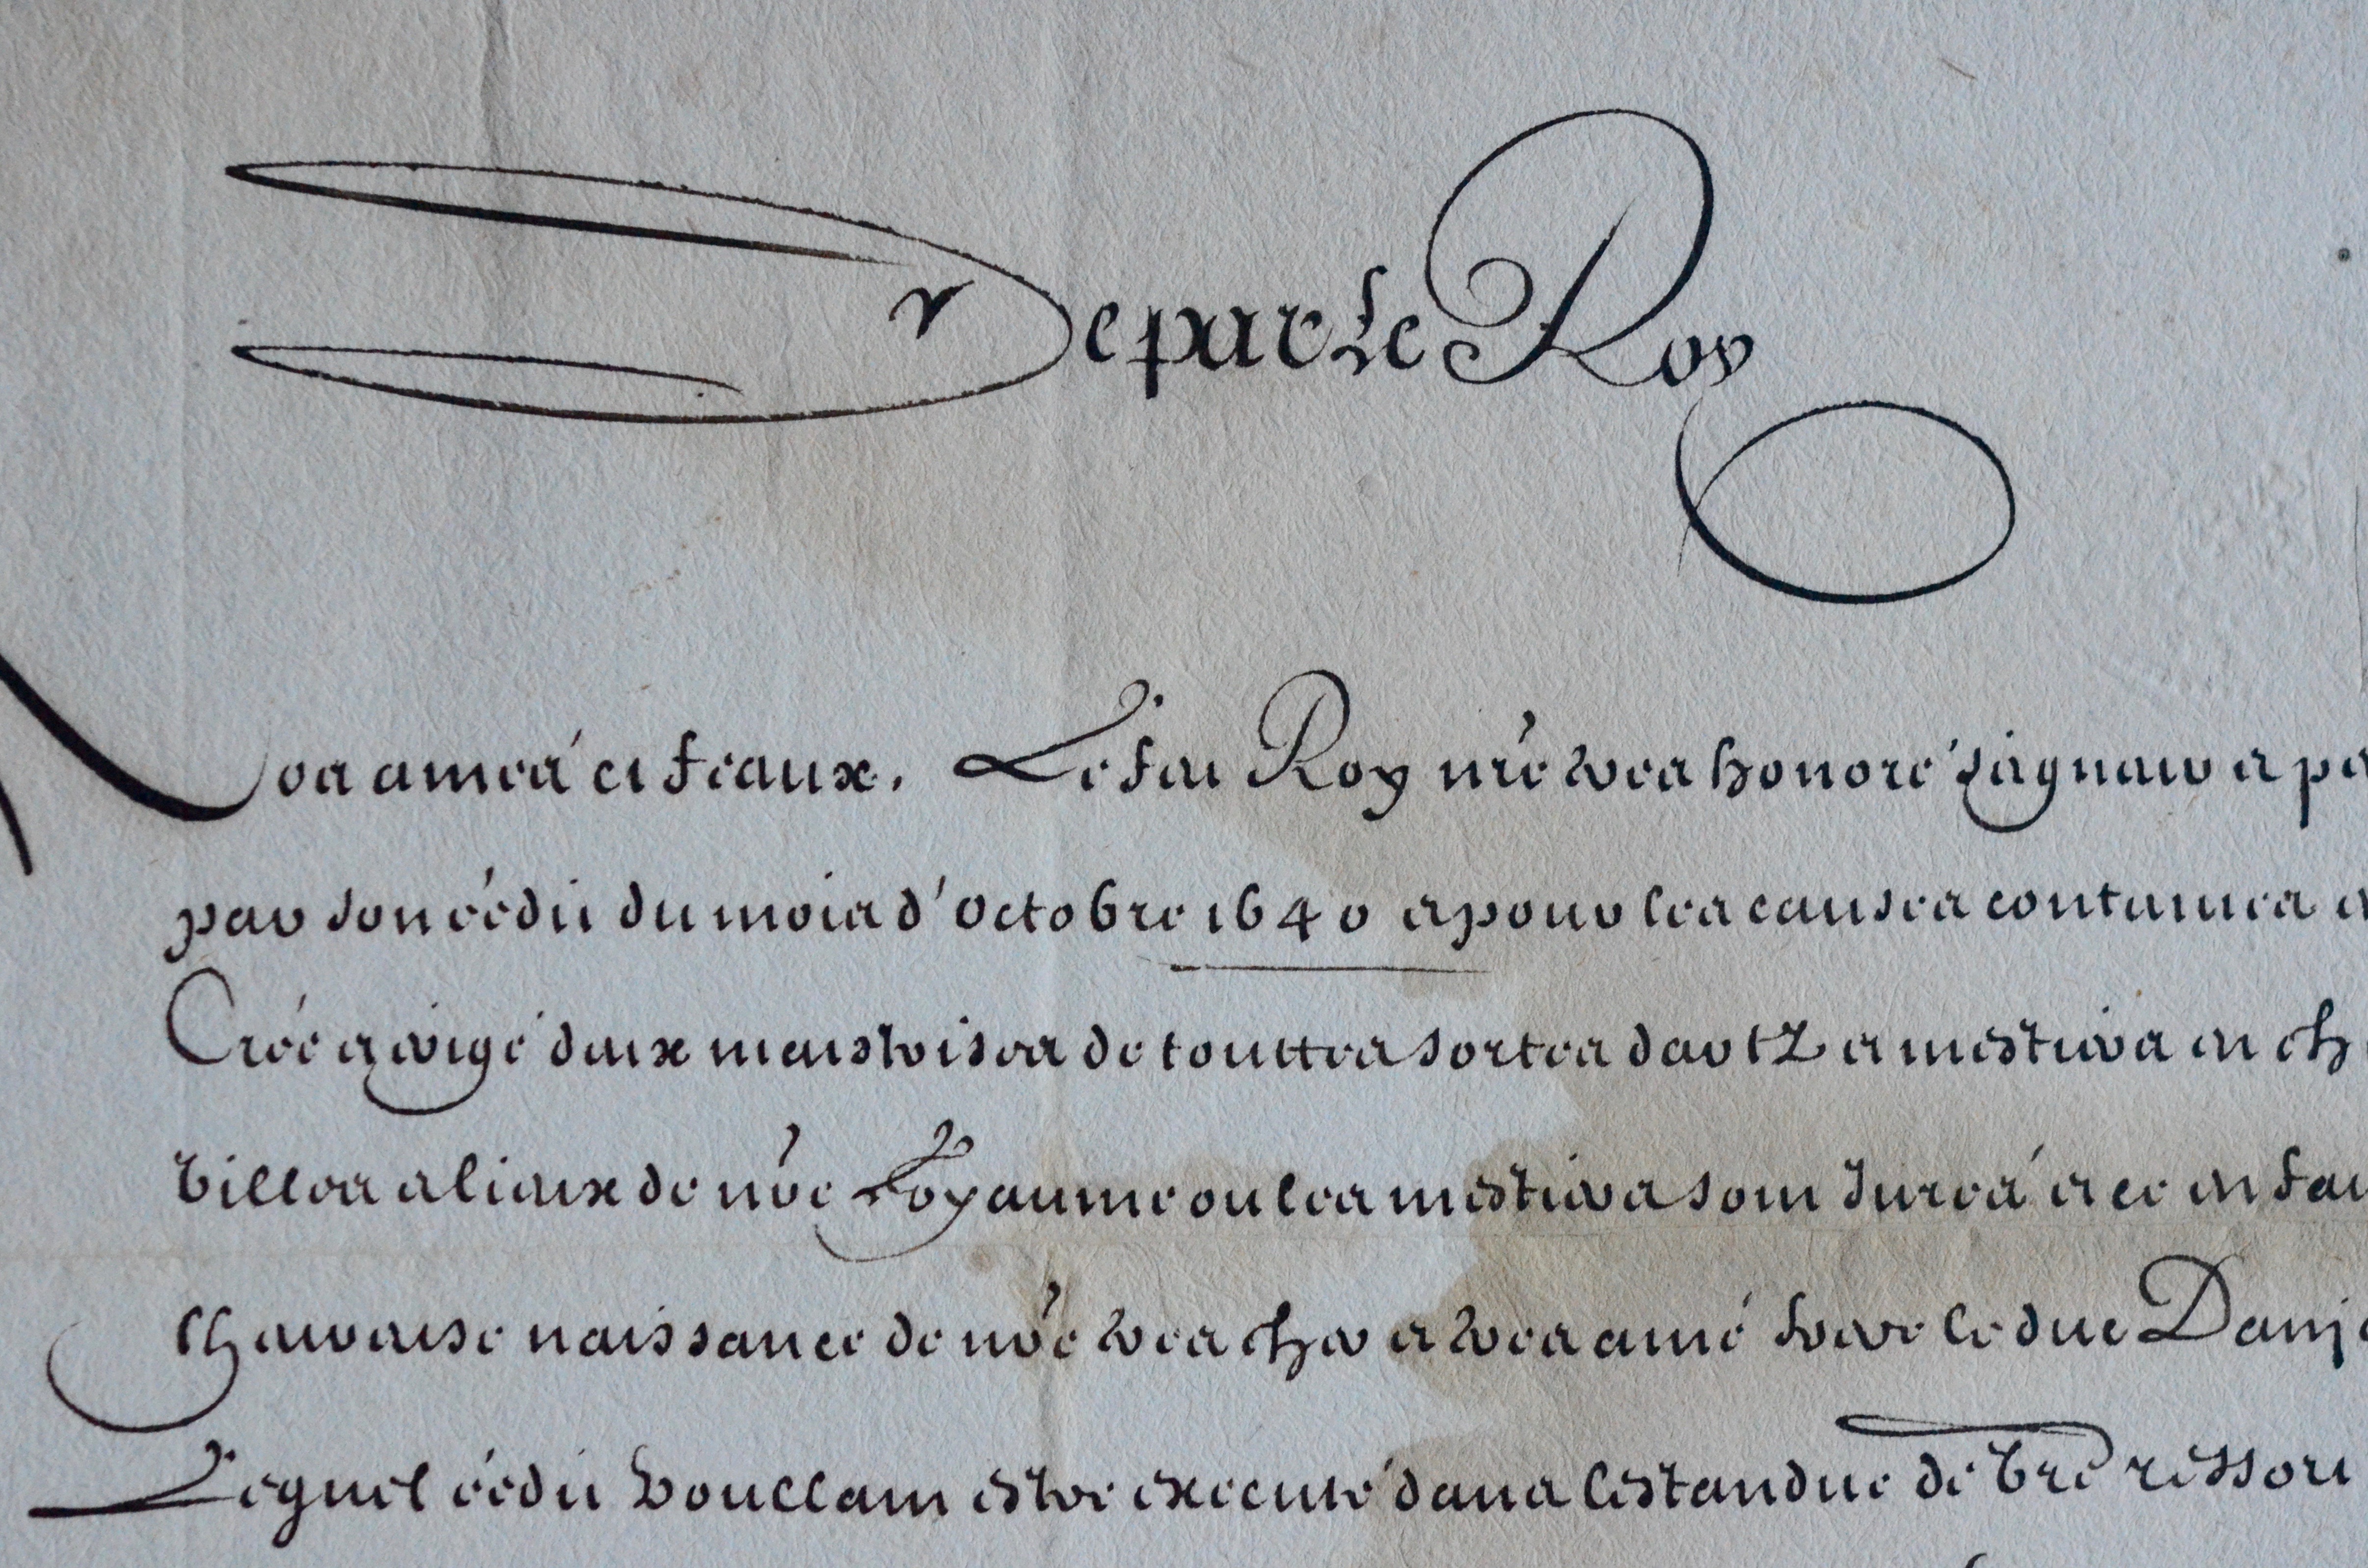 De par Le Roy
Nos amez et feaux. Le feu Roy n're tres honoré seigneur et pe
par son eédit du mois d'octobre 1640 et pour les causes contenues
Creé et erigé deux maistrises de touttes sortes d'artz et mestiers en ch
villes et lieux de n're Royaume ou les mestiers sont Jurez et ce en fau
Lheureuse naissance de n're tres cher et tres amé frere le duc Danj
Lequel eédit voullant estre executé dans lestandue de v're ressort